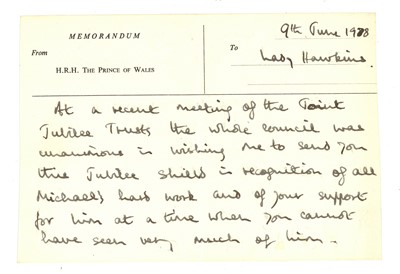 MEMORANDUM
From
H.R.H. THE PRINCE OF WALES
9th June 1978
To
Lady Hawkins.
At a recent meeting of the Joint
Jubilee Trusts the whole council was
unanimous in wishing me to send you
this Jubilee shield in recognition of all
Michael's hard work and of your support
for him at a time when you cannot
have seen very much of him.